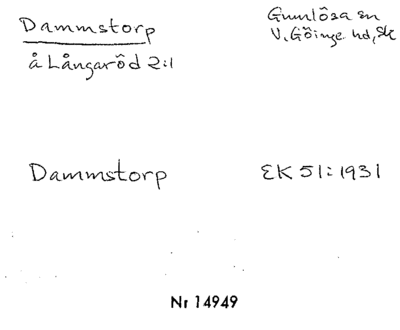 Dammstorp
Gumlösa sn
V. Göinge hd, Sk
å Långaröd 2:1
Dammstorp
EK 51:1931
Nr 14949